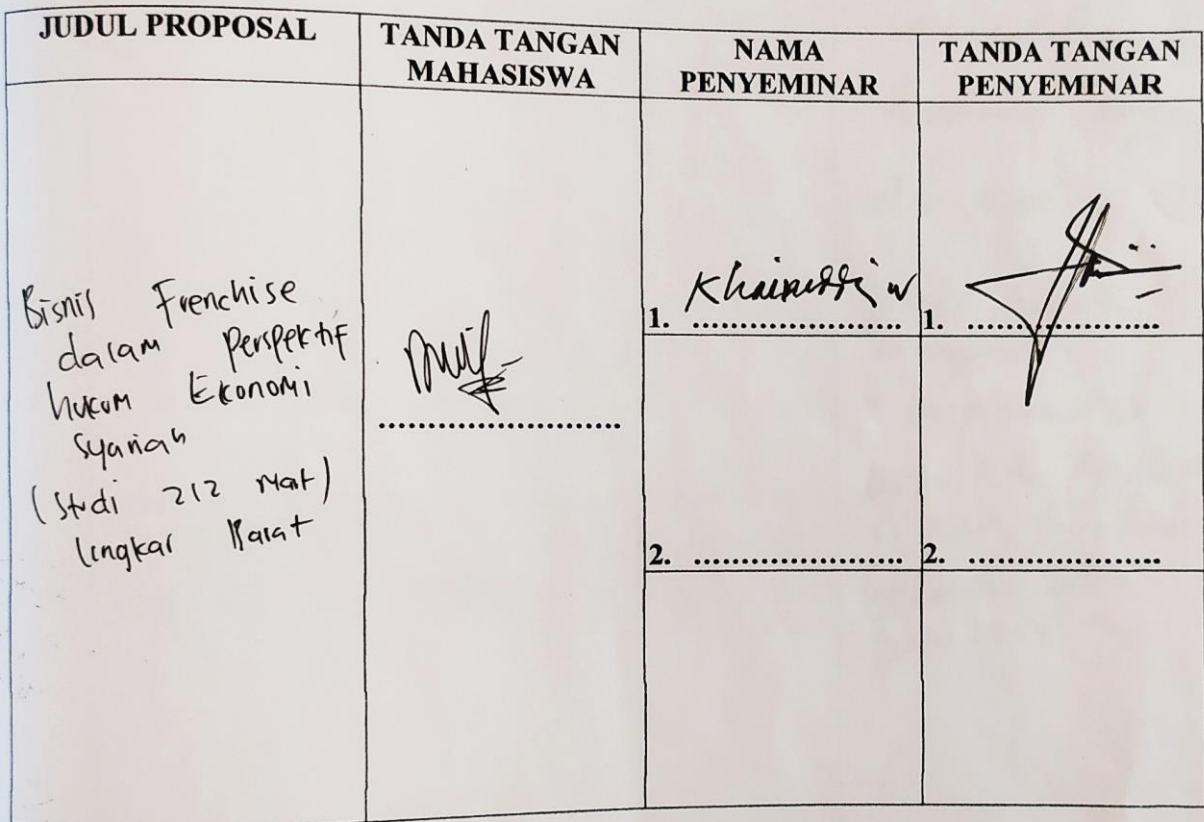 JUDUL PROPOSAL
TANDA TANGAN
MAHASISWA
NAMA
PENYEMINAR
TANDA TANGAN
PENYEMINAR
Bisnis Frenchise
dalam Perspektif
hukum Ekonomi
Syariah
(Studi 212 Mart)
lingkar Barat
.........................
Khairuddin
1. ......................
1. ....................
2. ......................
2. ....................